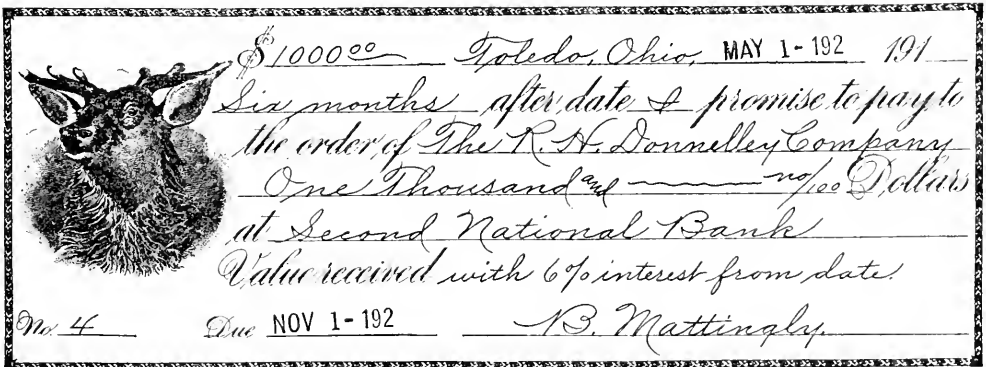 $1000.00 Toledo, Ohio, MAY 1-192 191
Six months after date I promise to pay to
the order of The R. H. Donnelley Company
One Thousand and no/100 Dollars
at Second National Bank
Value received with 6% interest from date.
No. 4 Due NOV 1-192 B. Mattingly.